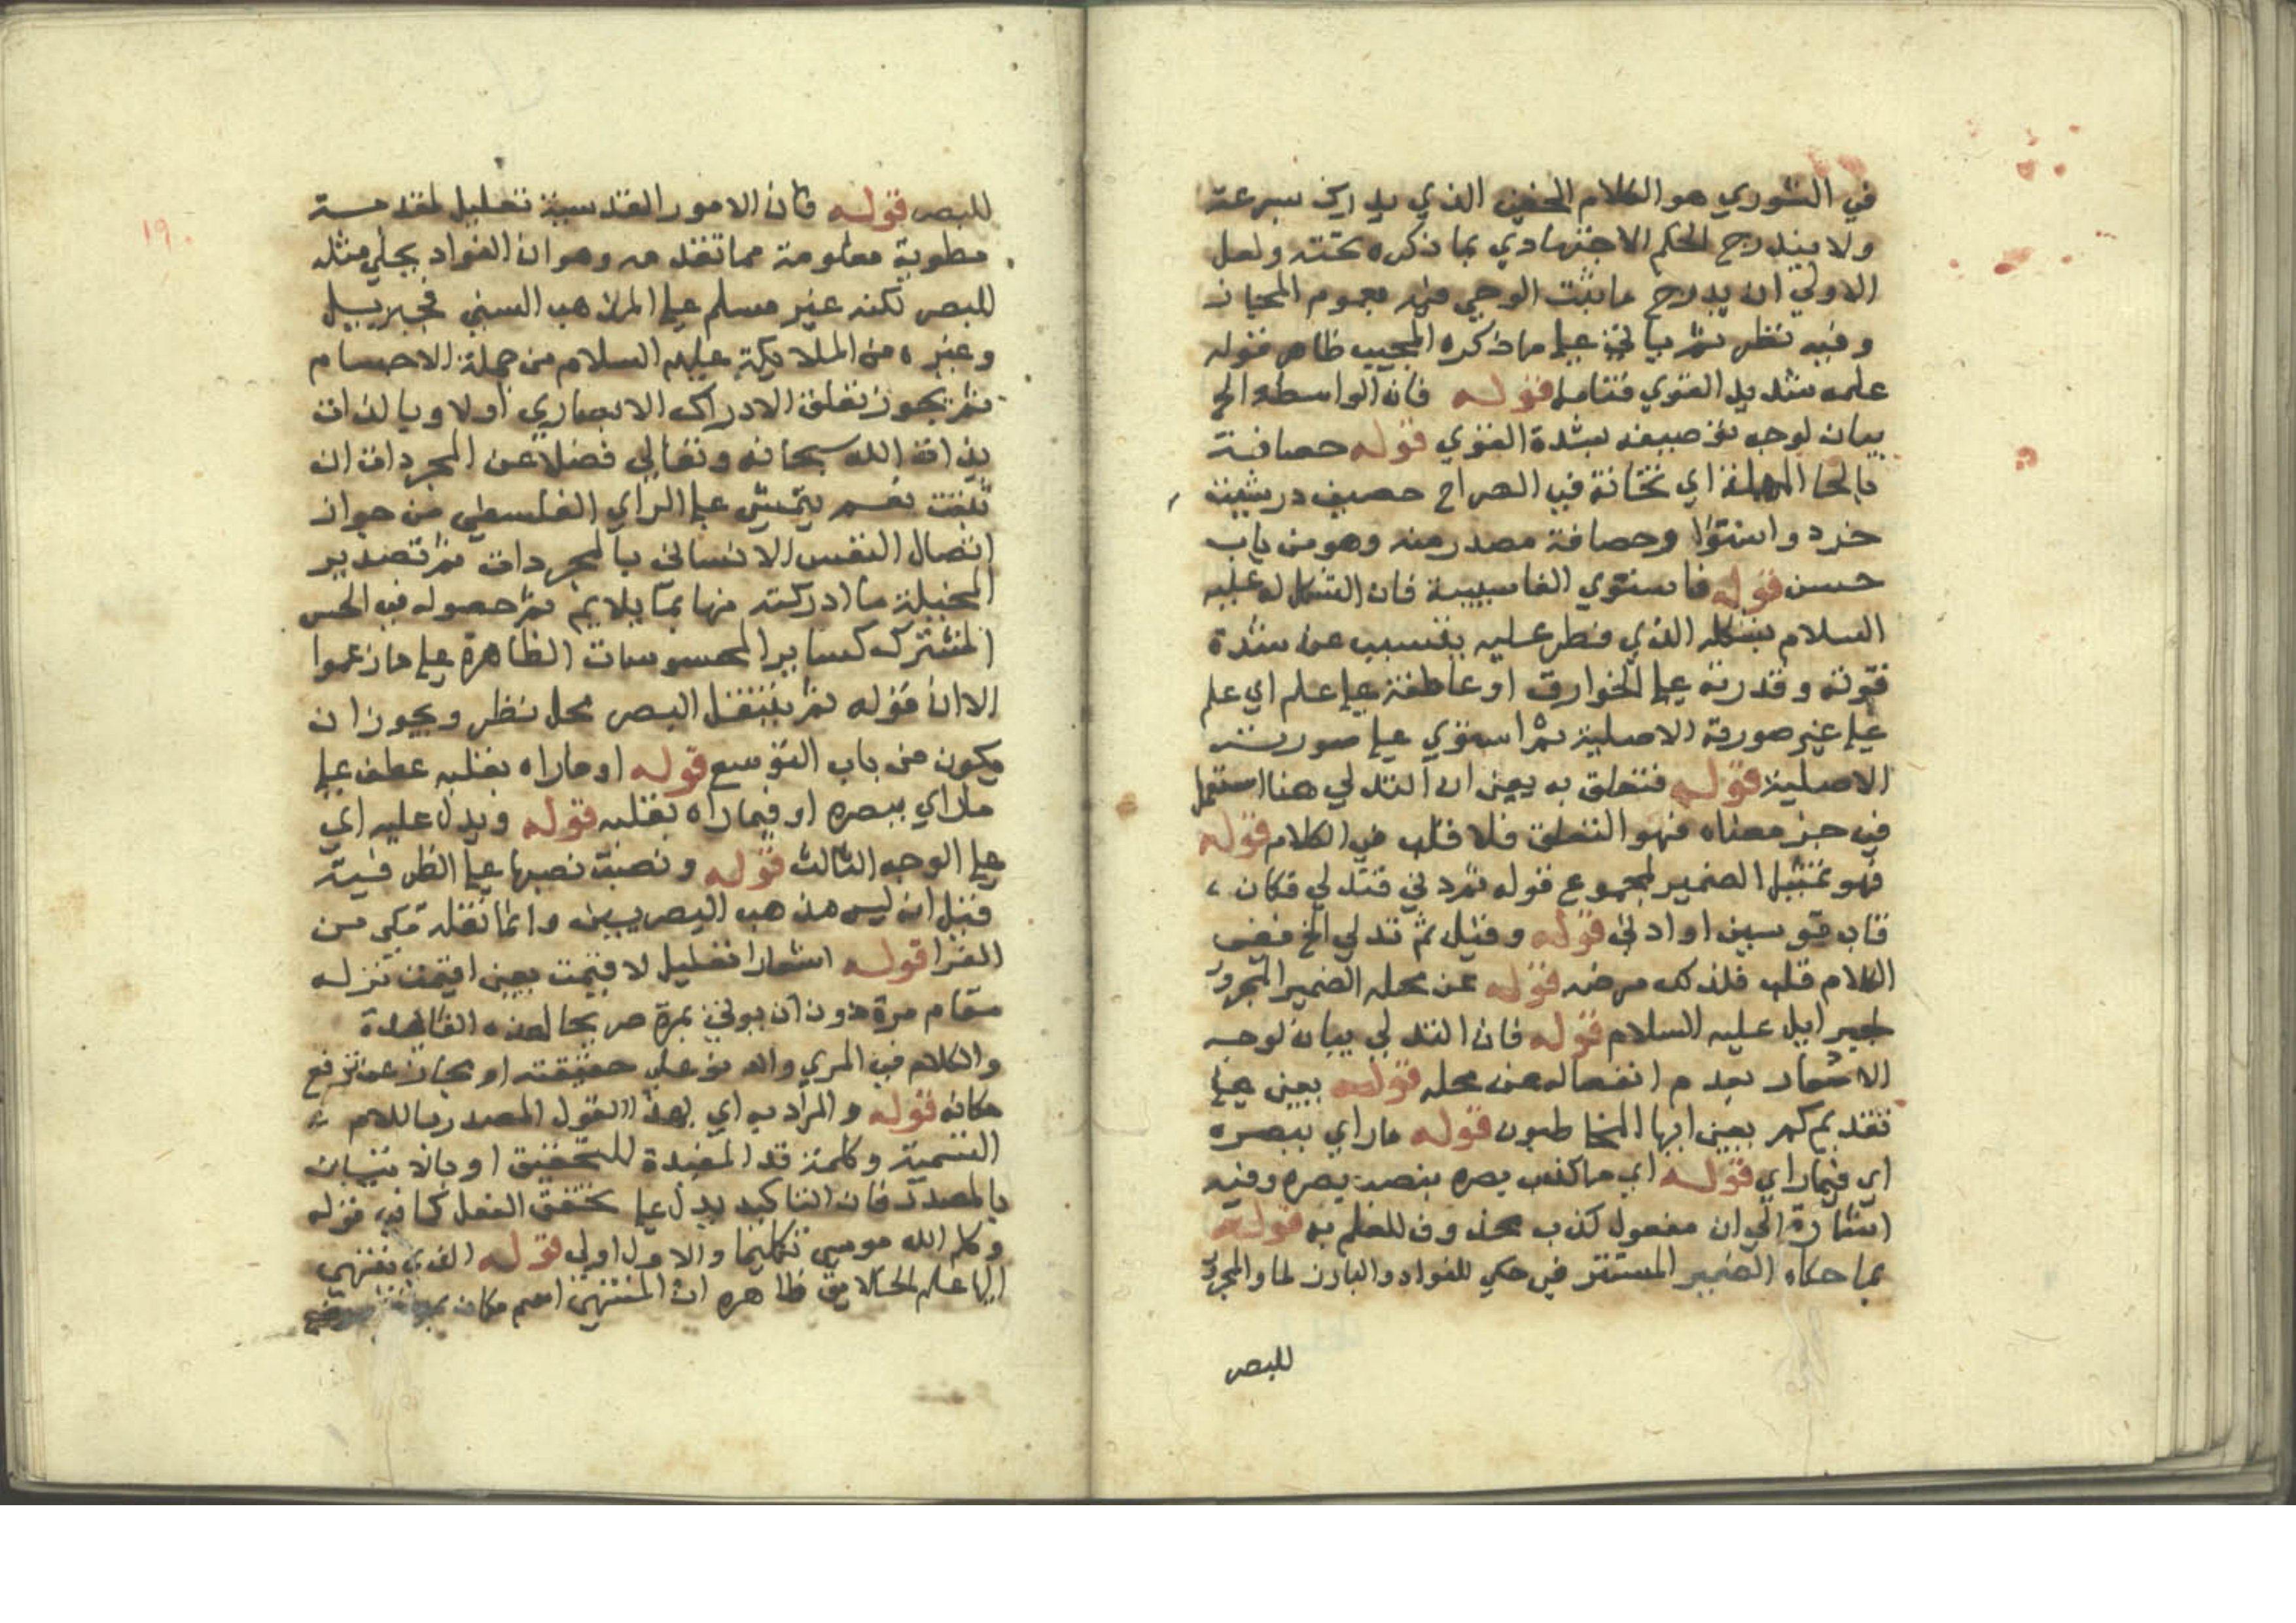 في الشوري هو الكلام الخفي الذي يدرك بسرعة
ولا يندرج الحكم الاجتهادي بما ذكره تحته ولعل
الاولي ان يدرج ما يثبت الوحي فيه بعموم المجاز
وفيه نظر ثم ياتي علي ما ذكره المجيب ظاهر قوله
علمه شديد القوي فتامل قوله فان الواسطة الخ
بيان لوجه توصيفه بشدة القوي قوله حصافة
بالحا المهملة اي تخانة في الصراح حصيف در بثينة
خرد واستوا وحصافة مصدر منه وهو من باب
حسن قوله فاستوي الفا سببية فان التشكل له عليه
السلام بشكله الذي فطر عليه يتسبب عن شدة
قوته وقدرته علي الخوارق او عاطفة علي علم اي علم
علي غير صورته الاصلية ثم استوي علي صورته
الاصلية قوله فتعلق به يعني ان التدلي هنا استعمل
في جز معناه فهو التعلق فلا قلب في الكلام قوله
فهو تمثيل الضمير لمجموع قوله ثم دني فتدلي فكان
قاب قوسين او ادني قوله وقيل ثم تدلي الخ ففي
الكلام قلب فلذلك مرضه قوله عن محله الضمير المجرور
لجبرايل عليه السلام قوله فان التدلي بيان لوجه
الاشعار بعدم انفصاله عن محله قوله بمعني علي
تقديركم يعني ايها المخاطبون قوله ما راي ببصره
اي فيما راي قوله اي ما كذب بصره بنصب بصره وفيه
اشارة الي ان مفعول كذب محذوف للعلم به قوله
بما حكاه الضمير المستتر في حكي للفواد والبارز لما والمجرور
للبصر
١٩
للبصر قوله فان الامور القدسية تعليل لمقدمة
مطوية معلومة مما تقدمه وهو ان الفواد يحكي مثله
للبصر لكنه غير مسلم علي المذهب السني فجبرييل
وغيره من الملايكة عليهم السلام من جملة الاجسام
ثم يجوز تعلق الادراك الابصاري اولا وبالذات
بذات الله سبحانه وتعالي فضلا عن المجردات ان
ثبتت نعم يتمشي علي الراي الفلسفي من جواز
اتصال النفس الانساني بالمجردات ثم تصدير
المخيلة ما ادركته منها بما يلايم ثم حصوله في الحس
المشترك كساير المحسوسات الظاهرة علي ما زعموا
الا ان قوله ثم ينتقل البصر محل نظر ويجوز ان
يكون من باب التوسع قوله او ما راه بقلبه عطف علي
ما راي ببصره او فيما راه بقلبه قوله ويدل عليه اي
علي الوجه الثالث قوله ونصبت نصبها علي الظرفية
قيل ان ليس مذهب البصريين وانما نقله مكي من
الفرا قوله اشعارا تعليل لاقيمت يعني اقيمت نزله
مقام مرة دون ان يوتي بمرة صريحا لهذه الفايدة
والكلام في المري والدنو علي حقيقته او مجاز عن ترفع
مكانه قوله والمراد به اي بهذا القول المصدر باللام
القسمية وكلمة قد المفيدة للتحقيق او بالاتيان
بالمصدر فان التاكيد يدل علي تحقق الفعل كما في قوله
وكلم الله موسي تكليما والاول اولي قوله الذي ينتهي
اليها علم الخلايق ظاهره ان المنتهي اسم مكان